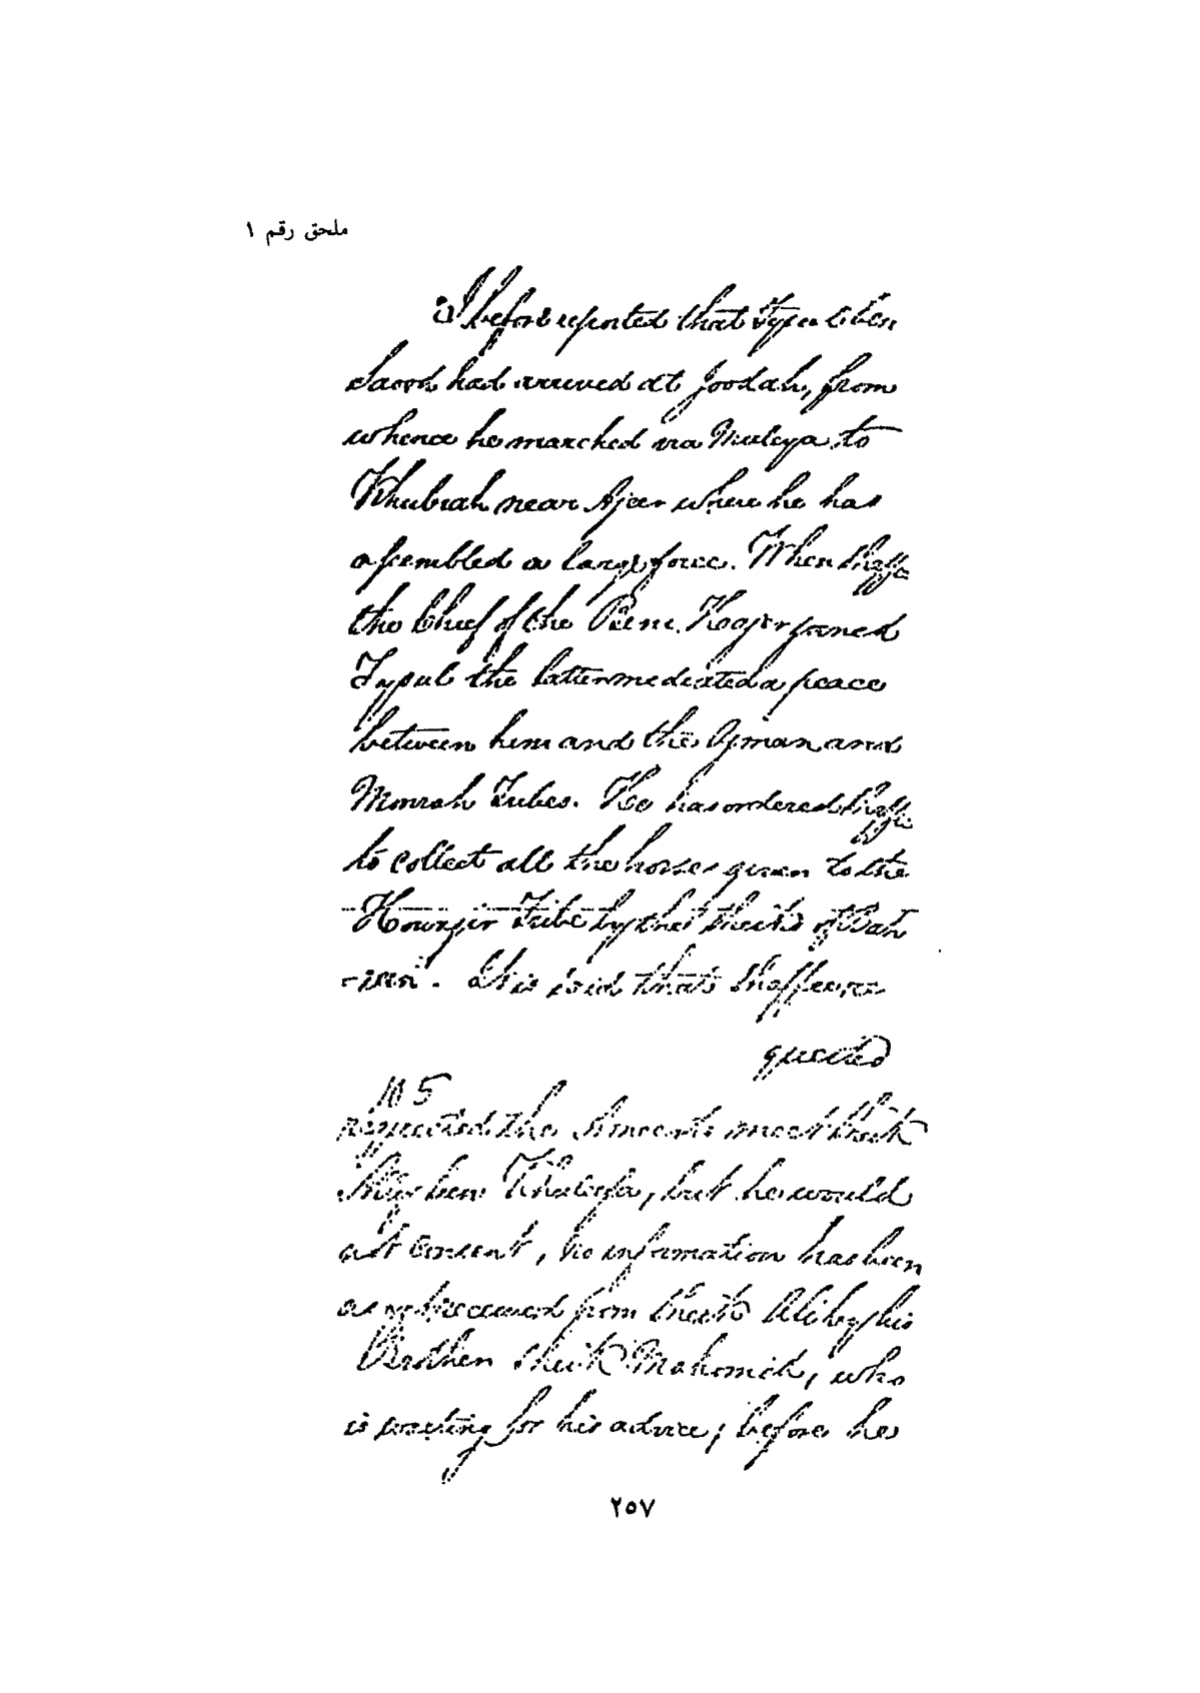 ملحق رقم ١
I before reported that Fysul ben
Saood had arrived at Joodah, from
whence he marched via Muleya to
Khubrah near Ajeer where he has
assembled a large force. When Shaffee
the Chief of the Beni Hajir joined
Fysul the latter mediated a peace
between him and the Ajman and
Monrah Tribes. He has ordered Shaffee
to collect all the horses given to the
Howajir Tribe by the Sheiks of Bah
-rein. It is said that Shaffee
quested
105
requested the Ameer to meet Sheik
ben Khuleefa, but he would
not consent, no information has been
as yet received from Sheik Ali by his
Brother Sheik Mahomed, who
is waiting for his advice, before he
٢٥٧